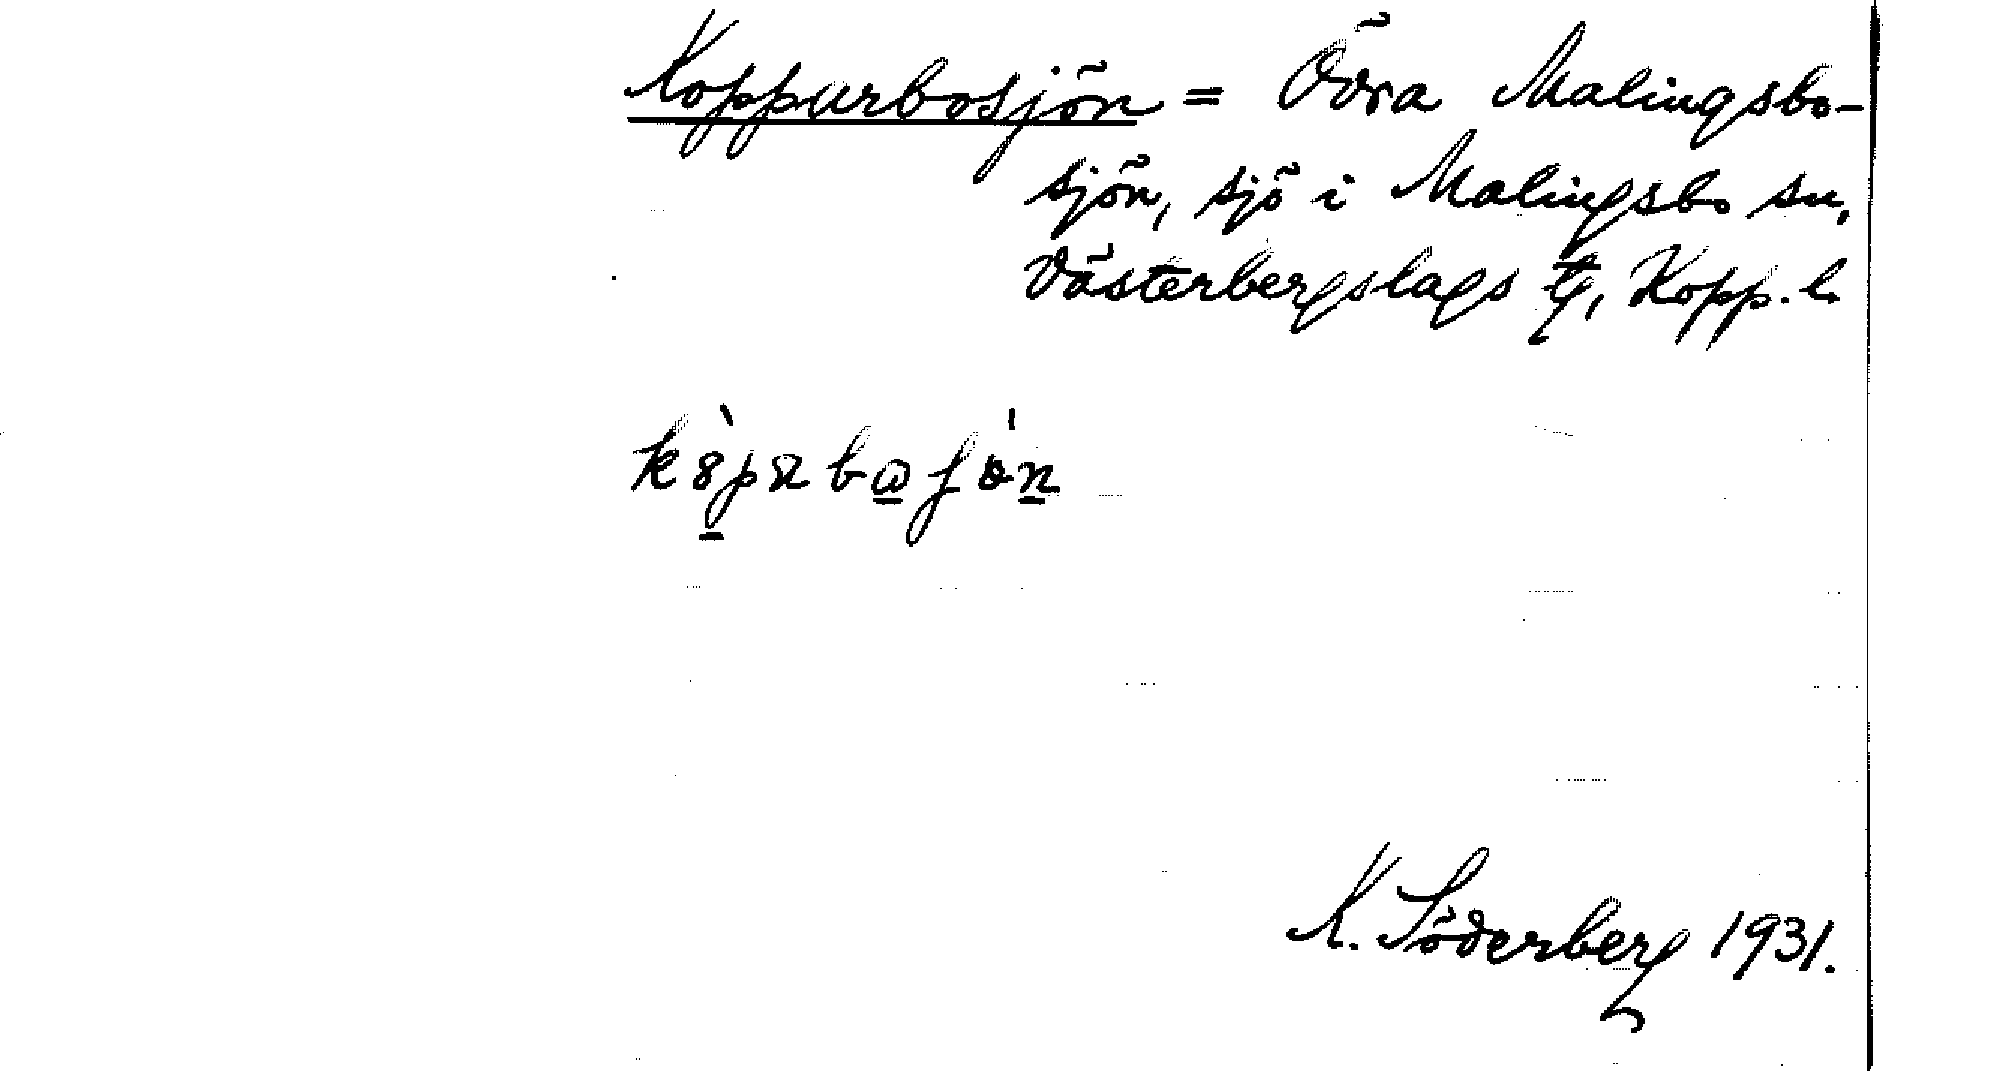 Kopparbosjön = Övra Malingsbo-
sjön, sjö i Malingsbo sn,
Västerbergslags tg, Kopp. l.
K. Söderberg 1931.